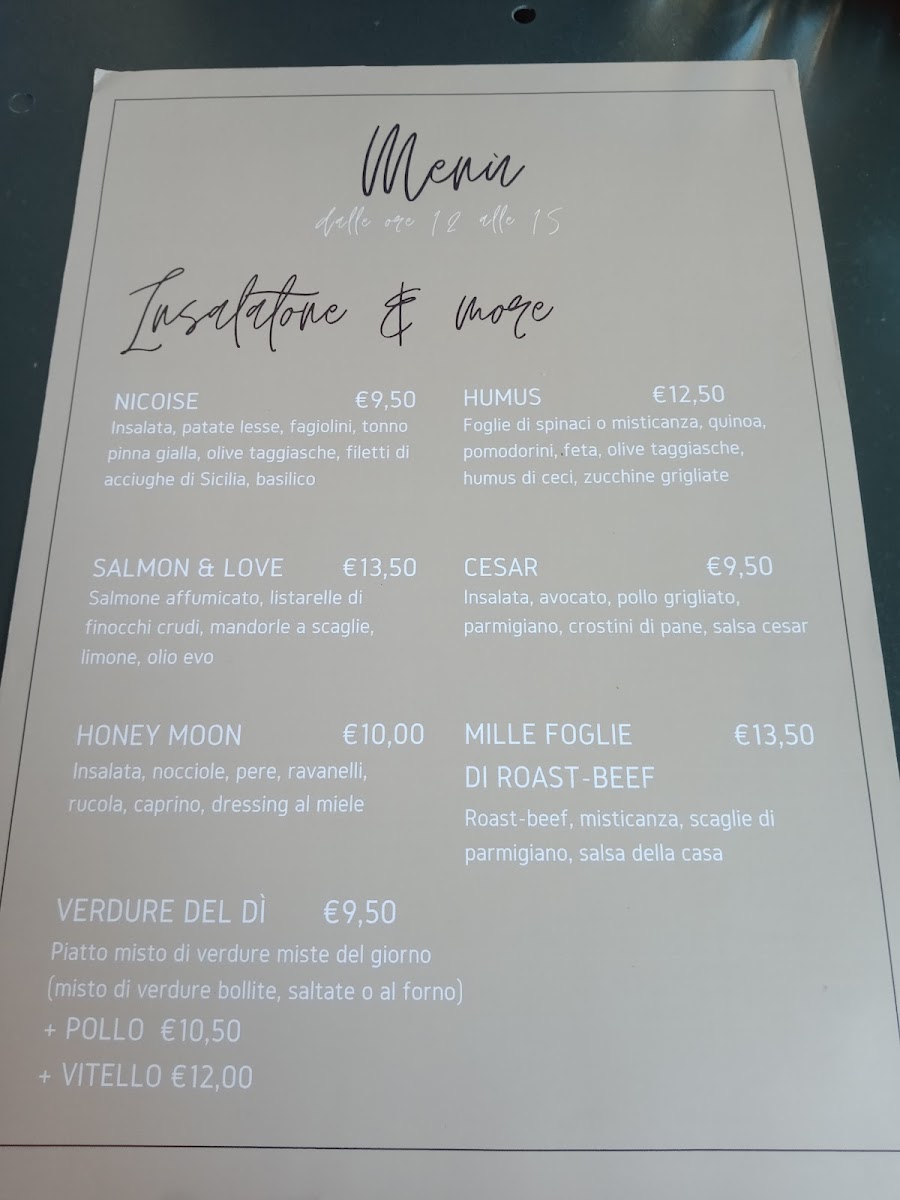 Menù
dalle ore 12 alle 15
Insalatone & more
NICOISE €9,50
Insalata, patate lesse, fagiolini, tonno
pinna gialla, olive taggiasche, filetti di
acciughe di Sicilia, basilico
HUMUS €12,50
Foglie di spinaci o misticanza, quinoa,
pomodorini, feta, olive taggiasche,
humus di ceci, zucchine grigliate
SALMON & LOVE €13,50
Salmone affumicato, listarelle di
finocchi crudi, mandorle a scaglie,
limone, olio evo
CESAR €9,50
Insalata, avocato, pollo grigliato,
parmigiano, crostini di pane, salsa cesar
HONEY MOON €10,00
Insalata, nocciole, pere, ravanelli,
rucola, caprino, dressing al miele
MILLE FOGLIE €13,50
DI ROAST-BEEF
Roast-beef, misticanza, scaglie di
parmigiano, salsa della casa
VERDURE DEL DÌ €9,50
Piatto misto di verdure miste del giorno
(misto di verdure bollite, saltate o al forno)
+ POLLO €10,50
+ VITELLO €12,00